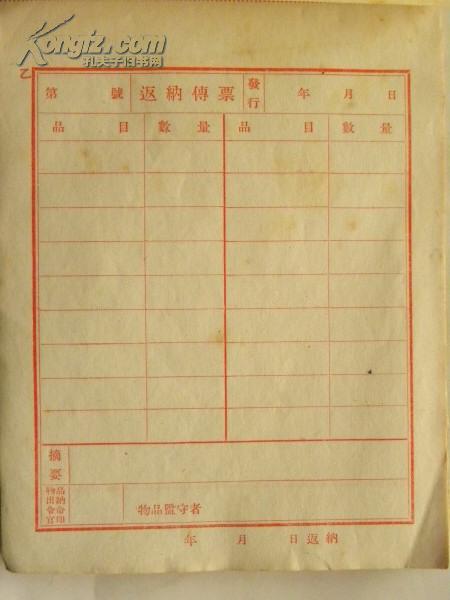 Kongfz.com
孔夫子旧书网
乙
第 號 返納傳票 發行 年 月 日
品 目 數 量 品 目 數 量
摘要
物品監守者
年 月 日 返納